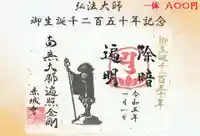 弘法大師
一体 八〇〇円
御生誕千二百五十年記念
除暗
遍明
御生誕千二百五十年
令和五年
南無大師遍照金剛